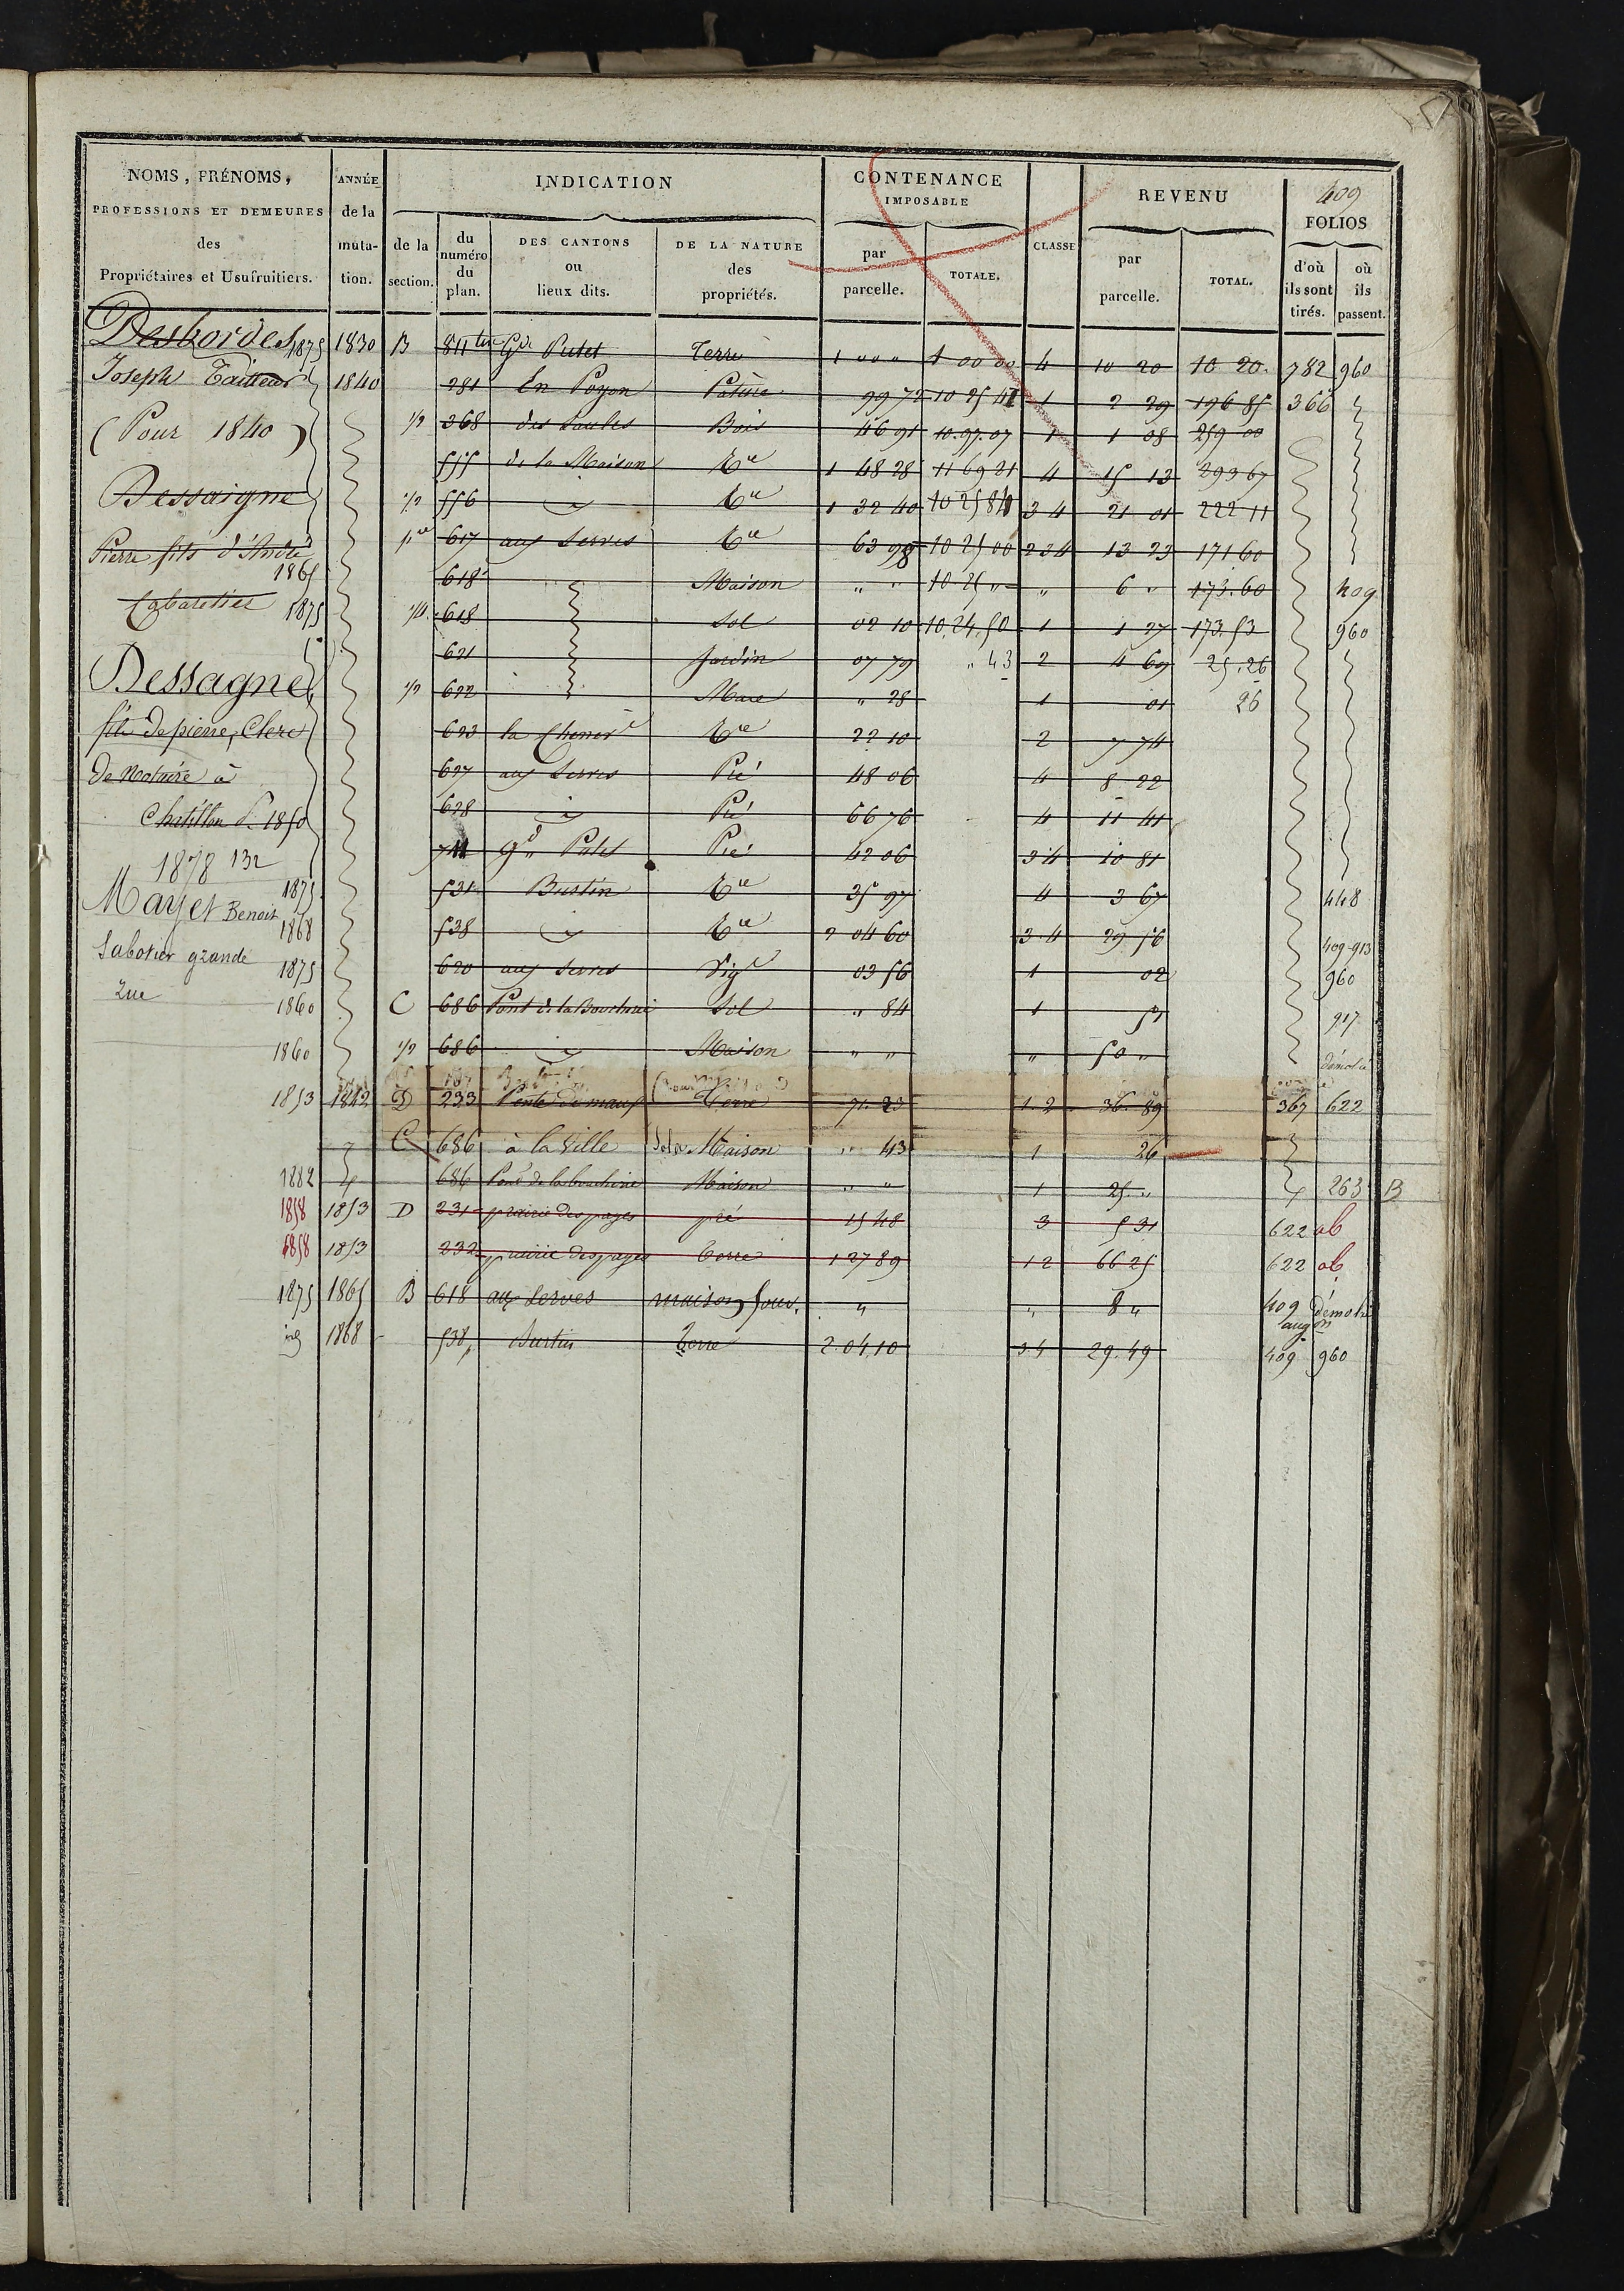 409
NOMS, PRÉNOMS, PROFESSIONS ET DEMEURES des Propriétaires et Usufruitiers.
ANNÉE de la muta-tion.
INDICATION
de la section.
du numéro du plan.
DES CANTONS ou lieux dits.
DE LA NATURE des propriétés.
CONTENANCE IMPOSABLE
par parcelle.
TOTALE.
CLASSE
REVENU
par parcelle.
TOTAL.
FOLIOS
d'où ils sont tirés.
où ils passent.
Desbordes 1875 1830 B 811 ter Gd Putet Terre 1 00 " 1 00 00 4 10 20 10 20 782 960
Joseph Tailleur 1840 281 En Poyon Pature 99 72 10 25 41 1 2 29 196 85 366
(Pour 1840) 1/2 368 des Saules Bois 46 91 10.97.07 1 1 08 259 00
555 de la Maison Tre 1 48 28 11 69 21 4 15 13 293 67
Dessaigne 1/2 556 Tre 1 32 40 10 25 84 3 4 21 01 222 11
617 aux Serves Tre 63 98 10 25 00 2 3 4 13 23 171 60
Pierre fils d'André
1865 618 Maison " " 10.25 " " 6 " 173.60 409
Cabaretier 1875 618 Sol 02 10 10.24.50 1 1 27 173.53 960
621 Jardin 07 79 " 43 2 4 69 25.26
Dessagne 1/2 622 Mare " 28 1 01 26
fils de pierre, Clerc 623 la Chener Tre 22 10 2 7 74
de Notaire à 627 aux Serves Pré 48 06 4 8 22
Chatillon P. 1850 628 Pré 66 76 4 11 41
1878 132 711 Gd Putet Pré 42 06 3 4 10 81
Mayet Benoit 1875 531 Bustin Tre 35 97 4 3 67 448
1868 538 Tre 2 04 60 3.4 29 56 409-913
Sabotier grande 1875 620 aux Serves Vig 03 56 1 02 960
rue 1860 C 686 Pont de la Boucherie Sol " 84 1 51 917
1860 1/2 686 Maison " " " 50 " démoli
1853 1842 D 233 Terre 71.23 1.2 36.89 367 622
C 686 à la Ville Sol de Maison " 43 1 26
1882 686 Pont de la boucherie Maison " " 1 25 " 263 B
1858 1853 D 231 prairie des pages pré 15 48 3 5 31 622 ab
1858 1853 232 prairie des pages terre 1 27 89 1 2 66 25 622 ab
1875 1865 B 618 aux Serves maison " " 8 " 409 démoli
augn
1868 538 Bustin terre 2.04.10 3 4 29.49 409 960